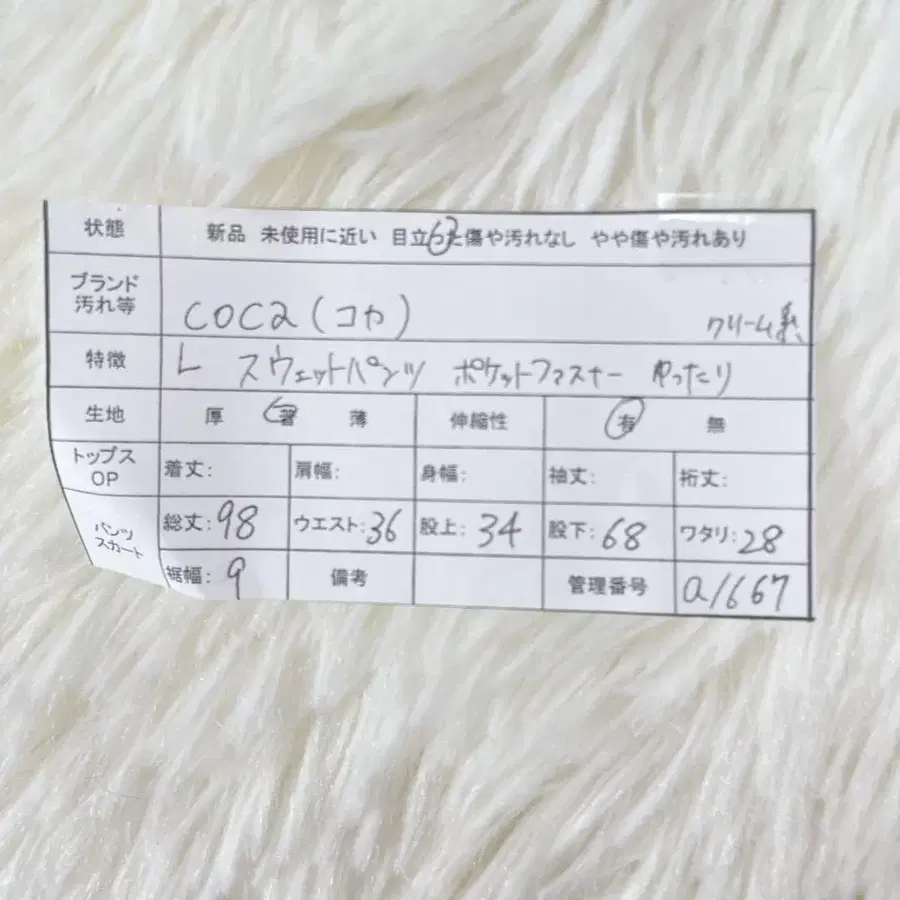 状態 新品 未使用に近い 目立った傷や汚れなし やや傷や汚れあり
ブランド
汚れ等 coca(コカ) クリーム系
特徴 L スウェットパンツ ポケットファスナー ゆったり
生地 厚 普 薄 伸縮性 有 無
トップス
OP 着丈: 肩幅: 身幅: 袖丈: 裄丈:
パンツ
スカート 総丈:98 ウエスト:36 股上:34 股下:68 ワタリ:28
裾幅:9 備考 管理番号 a1667